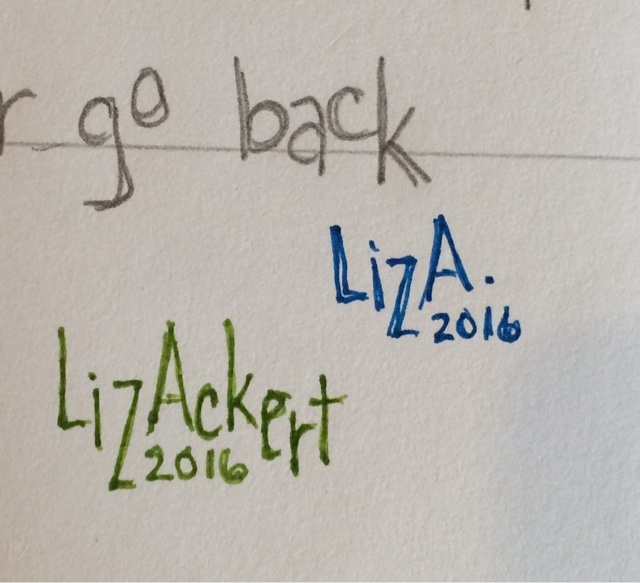 r go back
LizA.
2016
LizAckert
2016